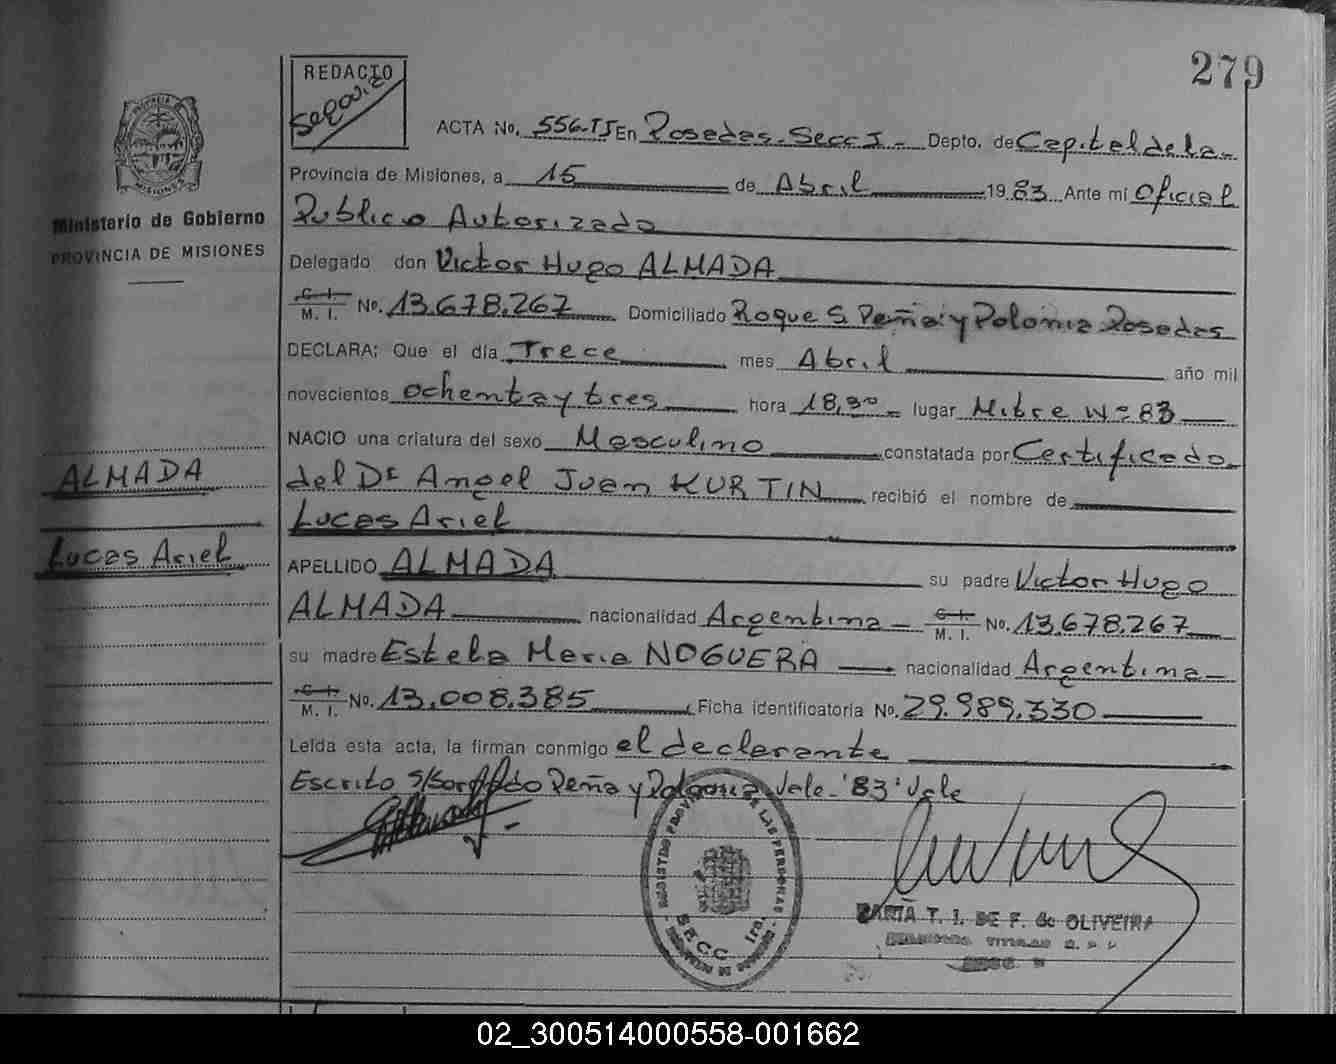 279
REDACTO
Segovia
ACTA No. 556-TI En Posadas-Secc I- Depto. de Capital de la-
Provincia de Misiones, a 15 de Abril 1983 Ante mi Oficial
Publico Autorizado
Delegado don Victor Hugo ALMADA
C. I. M. I. No. 13.678.267 Domiciliado Roque S. Peña y Polonia Posadas
DECLARA: Que el día Trece mes Abril año mil
novecientos ochenta y tres hora 18,30 lugar Mitre Nº 83
NACIO una criatura del sexo Masculino constatada por Certificado
del Dr Angel Juan KURTIN recibió el nombre de
Lucas Ariel
APELLIDO ALMADA su padre Victor Hugo
ALMADA nacionalidad Argentina C. I. M. I. No. 13.678.267
su madre Estela Maria NOGUERA nacionalidad Argentina
C. I. M. I. No. 13.008.385 Ficha identificatoria No. 29.989.330
Leída esta acta, la firman conmigo el declarante
Escrito s/borrado Peña y Polonia Vale- '83' Vale
PROVINCIA DE MISIONES
Ministerio de Gobierno
PROVINCIA DE MISIONES
ALMADA
Lucas Ariel
REGISTRO PROV. DE LAS PERSONAS
SECC. 1ra.
MARIA T. I. DE F. de OLIVEIRA
TITULAR R. P. P.
SECC.
02_300514000558-001662